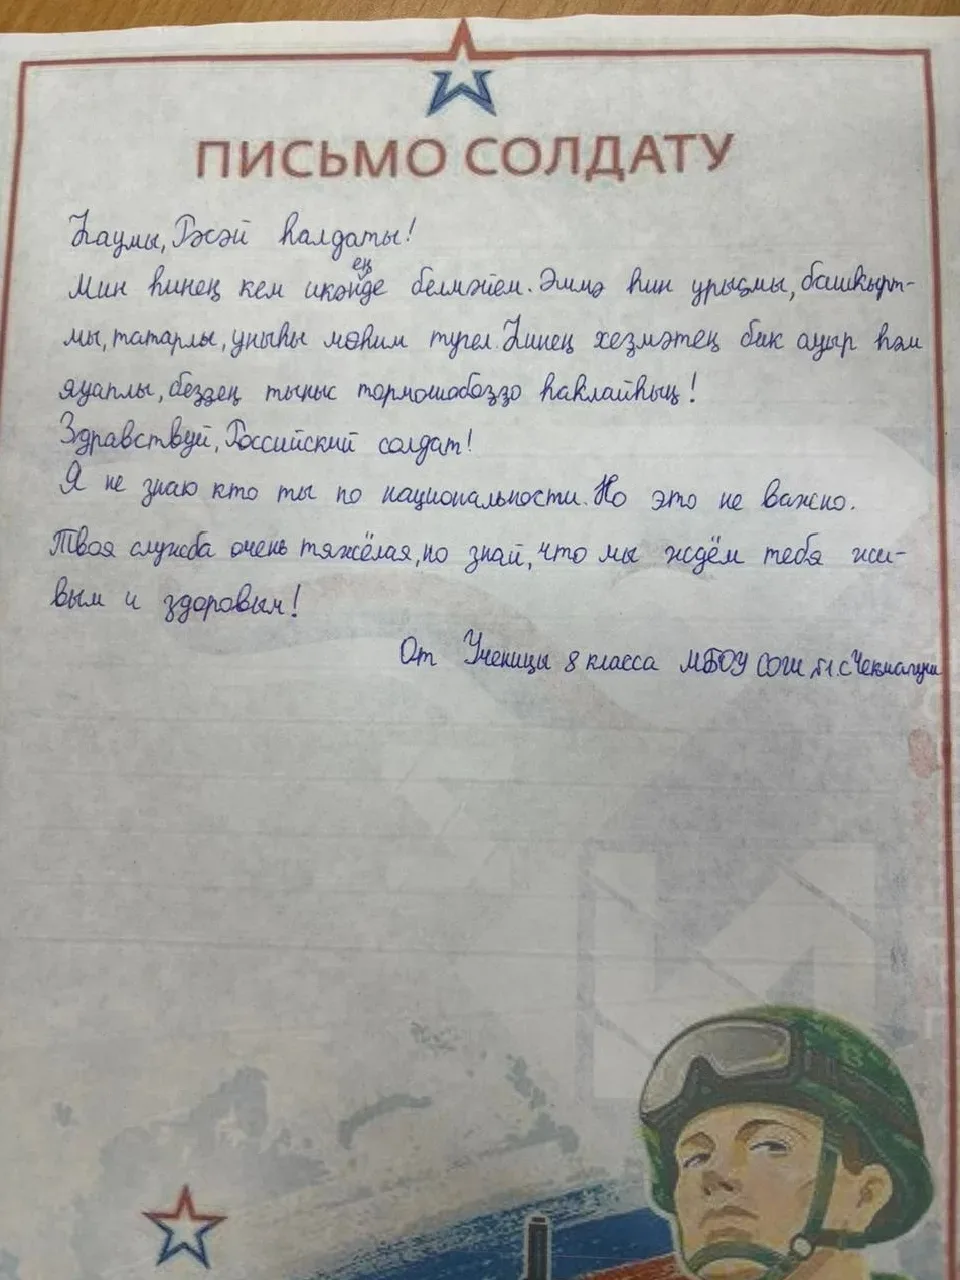 ПИСЬМО СОЛДАТУ
Һаумы, Рәсәй һалдаты!
Мин һинең кем икәнеңде белмәйем. Әммә һин урыҫмы, башҡырт-
мы, татармы, уныһы мөһим түгел. Һинең хеҙмәтең бик ауыр һәм
яуаплы, беҙҙең тыныс тормошобоҙҙо һаҡлайһың!
Здравствуй, Российский солдат!
Я не знаю кто ты по национальности. Но это не важно.
Твоя служба очень тяжёлая, но знай, что мы ждём тебя жи-
вым и здоровым!
От Ученицы 8 класса МБОУ СОШ №1. с Чекмагуш